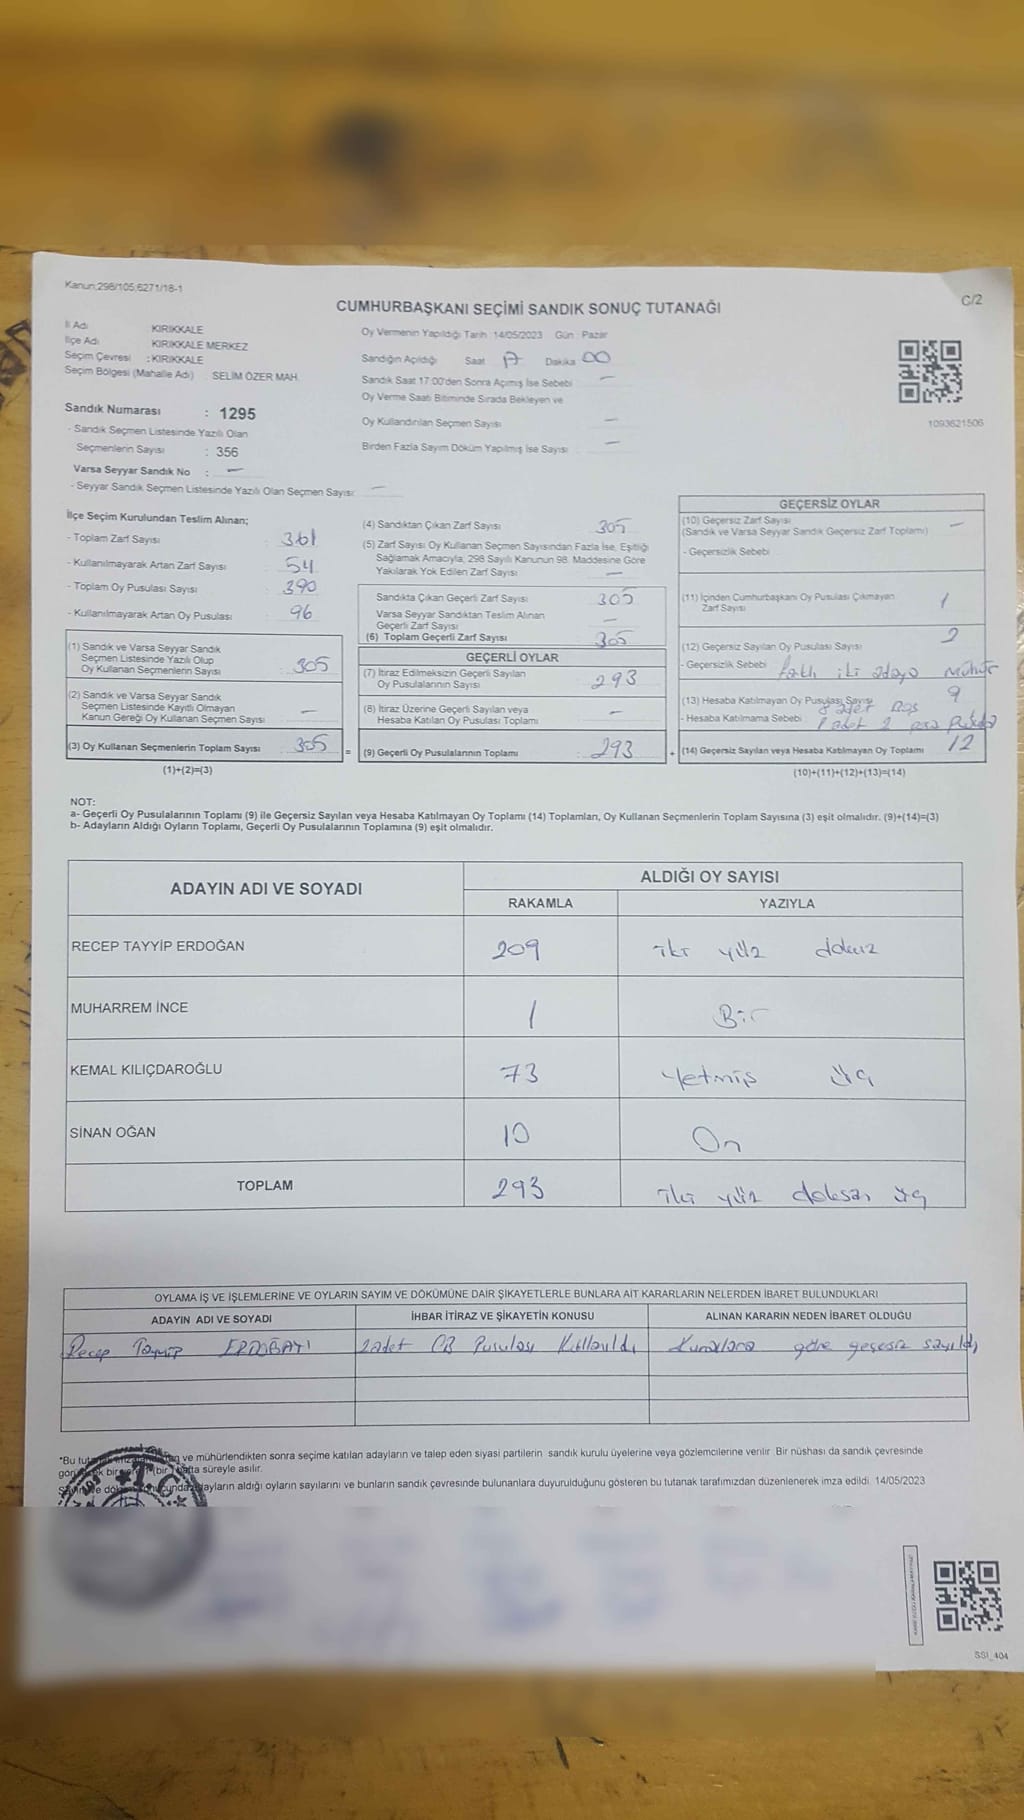 Kanun;298/105;6271/18-1
C/2
CUMHURBAŞKANI SEÇİMİ SANDIK SONUÇ TUTANAĞI
İl Adı KIRIKKALE
İlçe Adı KIRIKKALE MERKEZ
Seçim Çevresi : KIRIKKALE
Seçim Bölgesi (Mahalle Adı) SELİM ÖZER MAH.
Sandık Numarası : 1295
- Sandık Seçmen Listesinde Yazılı Olan
Seçmenlerin Sayısı : 356
Varsa Seyyar Sandık No : —
- Seyyar Sandık Seçmen Listesinde Yazılı Olan Seçmen Sayısı: —
Oy Vermenin Yapıldığı Tarih :14/05/2023 Gün : Pazar
Sandığın Açıldığı Saat 17 Dakika 00
Sandık Saat 17:00'den Sonra Açımış İse Sebebi —
Oy Verme Saati Bitiminde Sırada Bekleyen ve
Oy Kullandırılan Seçmen Sayısı —
Birden Fazla Sayım Döküm Yapılmış İse Sayısı —
1093621506
İlçe Seçim Kurulundan Teslim Alınan;
- Toplam Zarf Sayısı : 361
- Kullanılmayarak Artan Zarf Sayısı : 54
- Toplam Oy Pusulası Sayısı : 390
- Kullanılmayarak Artan Oy Pusulası : 96
(1) Sandık ve Varsa Seyyar Sandık
Seçmen Listesinde Yazılı Olup
Oy Kullanan Seçmenlerin Sayısı : 305
(2) Sandık ve Varsa Seyyar Sandık
Seçmen Listesinde Kayıtlı Olmayan
Kanun Gereği Oy Kullanan Seçmen Sayısı : —
(3) Oy Kullanan Seçmenlerin Toplam Sayısı : 305 =
(1)+(2)=(3)
(4) Sandıktan Çıkan Zarf Sayısı 305
(5) Zarf Sayısı Oy Kullanan Seçmen Sayısından Fazla İse, Eşitliği
Sağlamak Amacıyla, 298 Sayılı Kanunun 98. Maddesine Göre
Yakılarak Yok Edilen Zarf Sayısı —
Sandıkta Çıkan Geçerli Zarf Sayısı 305
Varsa Seyyar Sandıktan Teslim Alınan
Geçerli Zarf Sayısı —
(6) Toplam Geçerli Zarf Sayısı 305
GEÇERLİ OYLAR
(7) İtiraz Edilmeksizin Geçerli Sayılan
Oy Pusulalarının Sayısı : 293
(8) İtiraz Üzerine Geçerli Sayılan veya
Hesaba Katılan Oy Pusulası Toplamı : —
(9) Geçerli Oy Pusulalarının Toplamı : 293 +
GEÇERSİZ OYLAR
(10) Geçersiz Zarf Sayısı —
(Sandık ve Varsa Seyyar Sandık Geçersiz Zarf Toplamı)
- Geçersizlik Sebebi
(11) İçinden Cumhurbaşkanı Oy Pusulası Çıkmayan
Zarf Sayısı 1
(12) Geçersiz Sayılan Oy Pusulası Sayısı 2
- Geçersizlik Sebebi farklı iki adaya mühür
(13) Hesaba Katılmayan Oy Pusulası Sayısı 9
- Hesaba Katılmama Sebebi 8 adet Boş
1 adet 2 pusula
(14) Geçersiz Sayılan veya Hesaba Katılmayan Oy Toplamı 12
(10)+(11)+(12)+(13)=(14)
NOT:
a- Geçerli Oy Pusulalarının Toplamı (9) ile Geçersiz Sayılan veya Hesaba Katılmayan Oy Toplamı (14) Toplamları, Oy Kullanan Seçmenlerin Toplam Sayısına (3) eşit olmalıdır. (9)+(14)=(3)
b- Adayların Aldığı Oyların Toplamı, Geçerli Oy Pusulalarının Toplamına (9) eşit olmalıdır.
ADAYIN ADI VE SOYADI ALDIĞI OY SAYISI
RAKAMLA YAZIYLA
RECEP TAYYİP ERDOĞAN 209 iki yüz dokuz
MUHARREM İNCE 1 Bir
KEMAL KILIÇDAROĞLU 73 Yetmiş üç
SİNAN OĞAN 10 On
TOPLAM 293 iki yüz doksan üç
OYLAMA İŞ VE İŞLEMLERİNE VE OYLARIN SAYIM VE DÖKÜMÜNE DAİR ŞİKAYETLERLE BUNLARA AİT KARARLARIN NELERDEN İBARET BULUNDUKLARI
ADAYIN ADI VE SOYADI İHBAR İTİRAZ VE ŞİKAYETİN KONUSU ALINAN KARARIN NEDEN İBARET OLDUĞU
Recep Tayyip ERDOĞAN 2 adet CB Pusulası Kullanıldı Kurallara göre geçersiz sayıldı
ve mühürlendikten sonra seçime katılan adayların ve talep eden siyasi partilerin sandık kurulu üyelerine veya gözlemcilerine verilir. Bir nüshası da sandık çevresinde
(bir) hafta süreyle asılır.
adayların aldığı oyların sayılarını ve bunların sandık çevresinde bulunanlara duyurulduğunu gösteren bu tutanak tarafımızdan düzenlenerek imza edildi. 14/05/2023
SSI_404